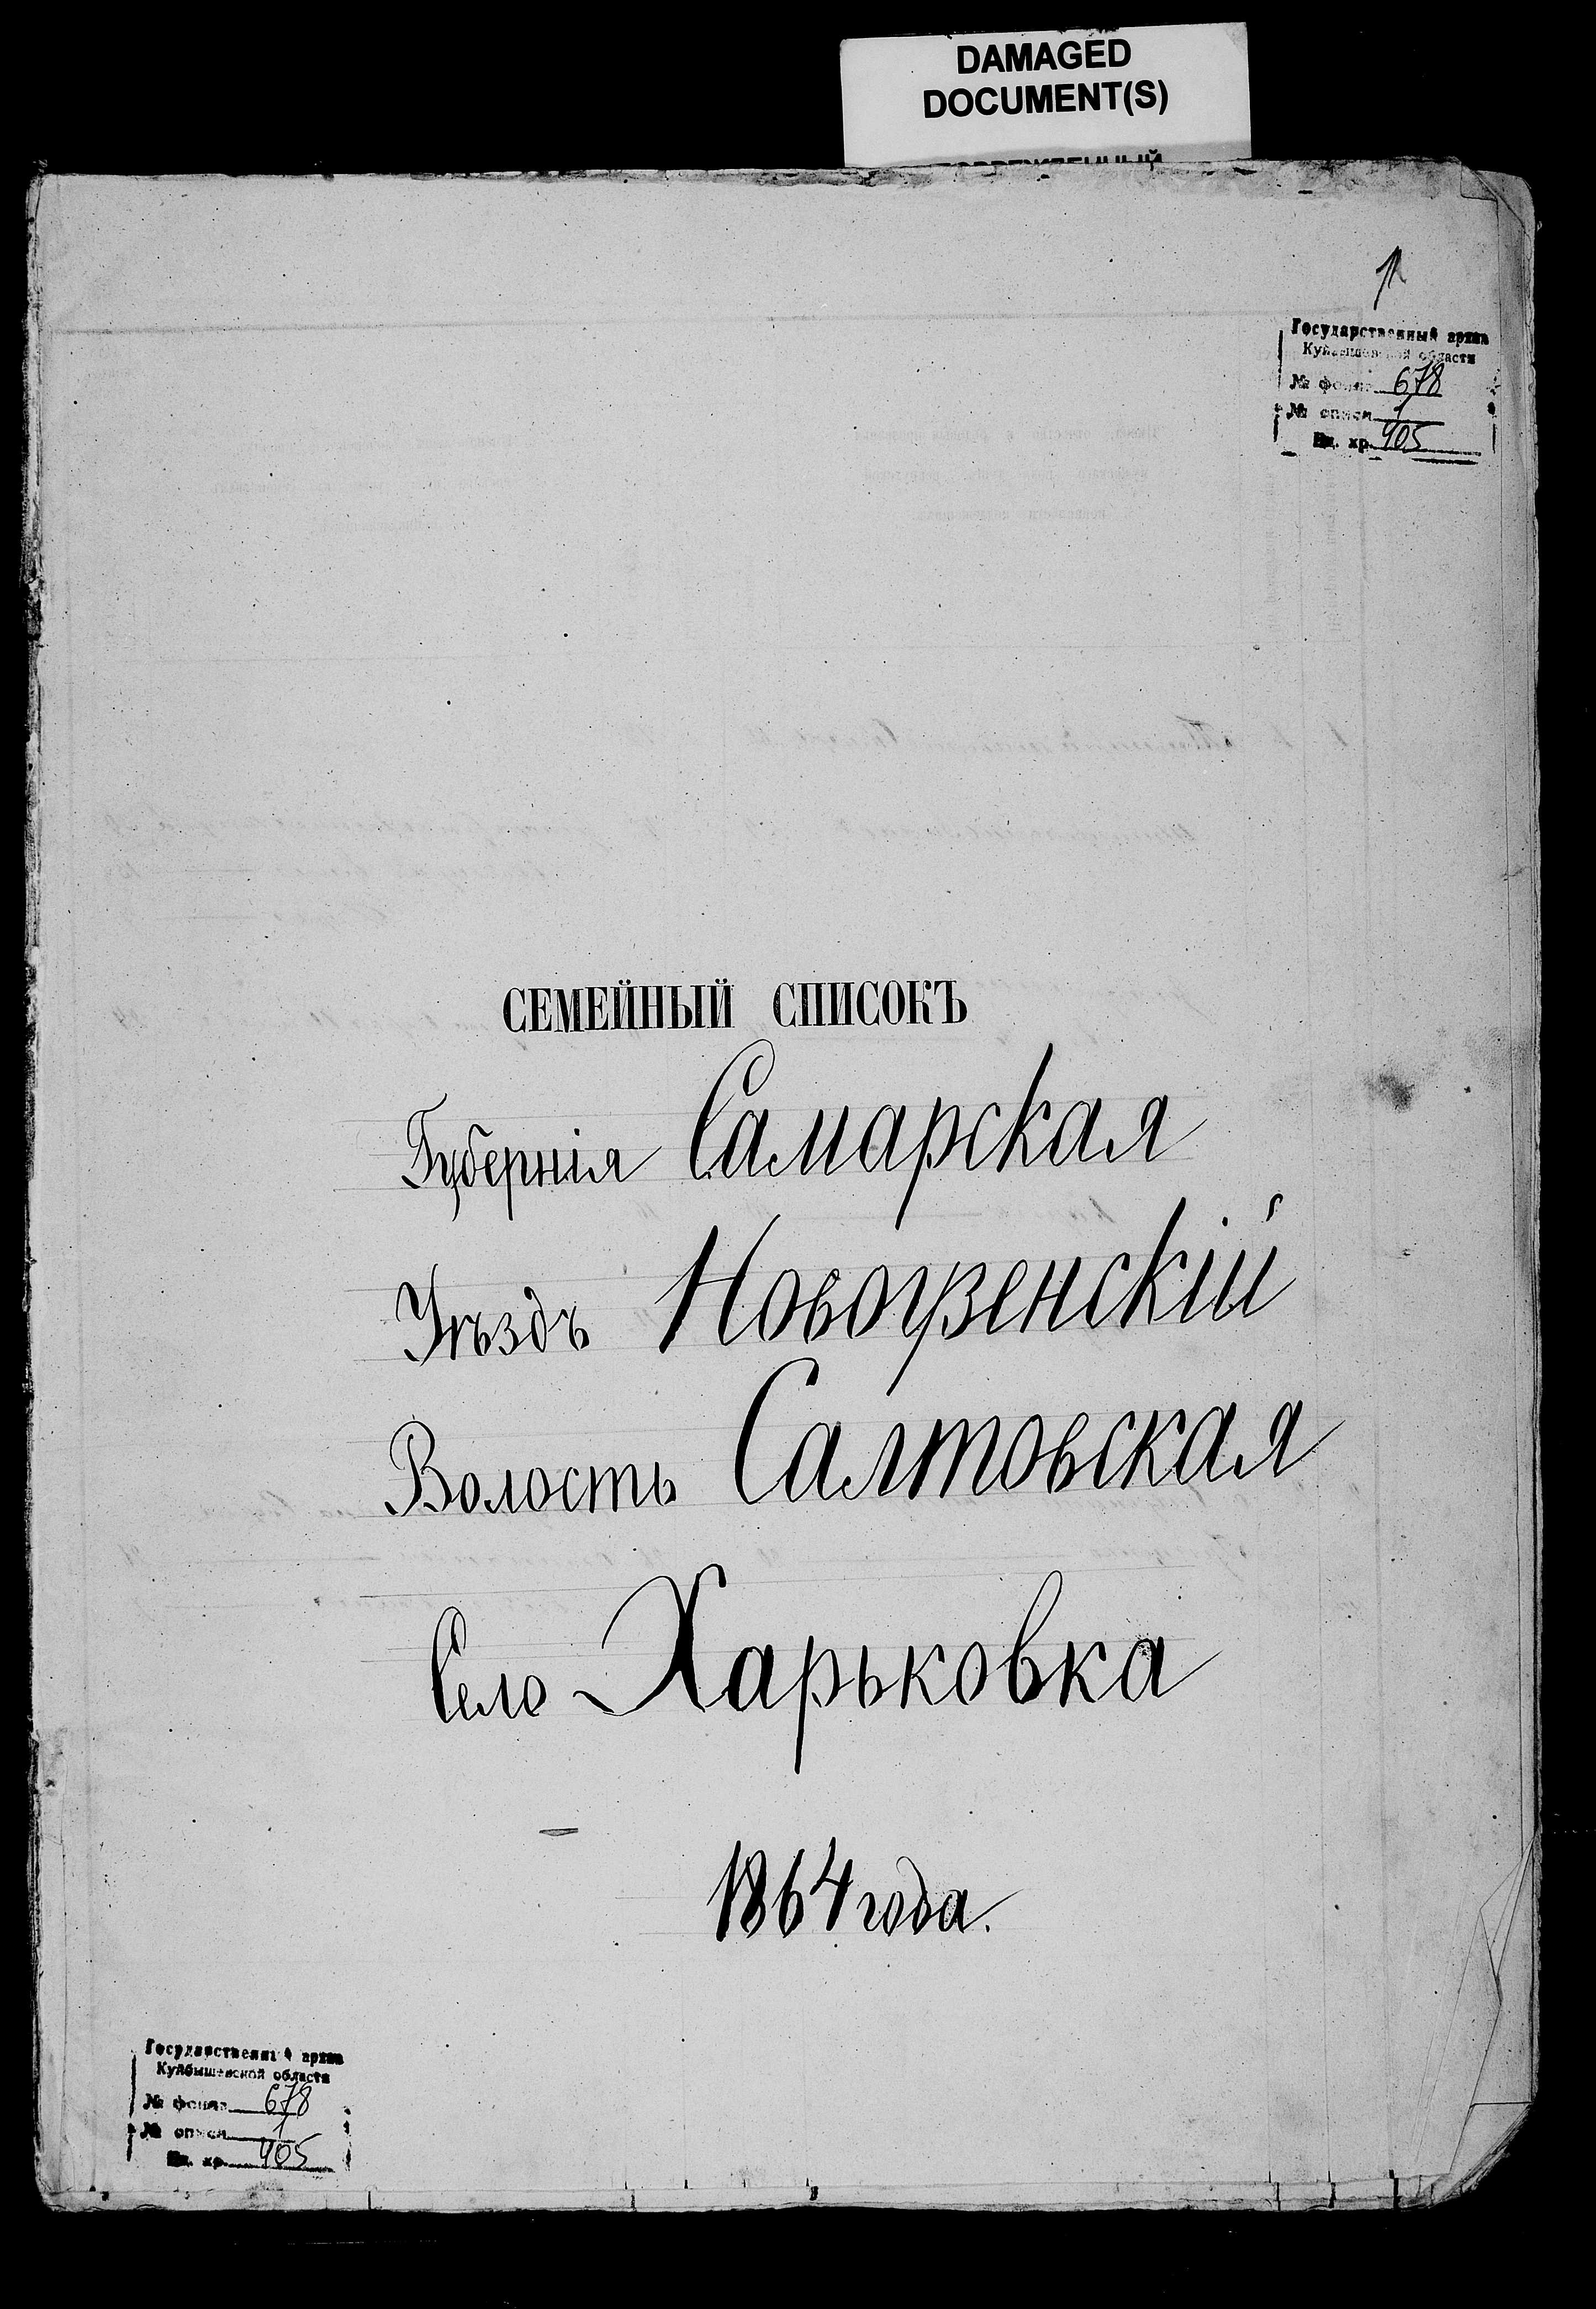 DAMAGED
DOCUMENT(S)
Государственный архив
Куйбышевской области
№ фонда 678
№ описи 1
Ед. хр. 905
СЕМЕЙНЫЙ СПИСОКЪ
Губернія Самарская
Уѣздъ Новоузенскій
Волость Салтовская
Село Харьковка
1864 года.
Государственный архив
Куйбышевской области
№ фонда 678
№ описи 1
Ед. хр. 905